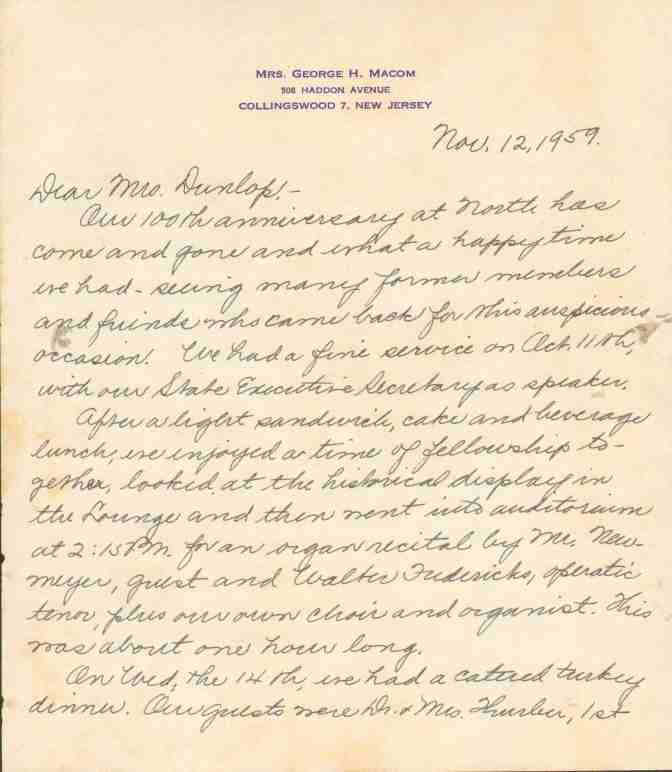 MRS. GEORGE H. MACOM
508 HADDON AVENUE
COLLINGSWOOD 7, NEW JERSEY
Nov. 12, 1959.
Dear Mrs. Dunlop:-
Our 100th anniversary at North has
come and gone and what a happy time
we had - seeing many former members
and friends who came back for this auspicious
occasion. We had a fine service on Oct. 11th,
with our State Executive Secretary as speaker.
After a light sandwich, cake and beverage
lunch, we enjoyed a time of fellowship to-
gether, looked at the historical display in
the Lounge and then went into auditorium
at 2:15 P.M. for an organ recital by Mr. New-
meyer, guest and Walter Fredericks, operatic
tenor, plus our own choir and organist. This
was about one hour long.
On Wed, the 14th, we had a catered turkey
dinner. Our guests were Dr. & Mrs. 1st